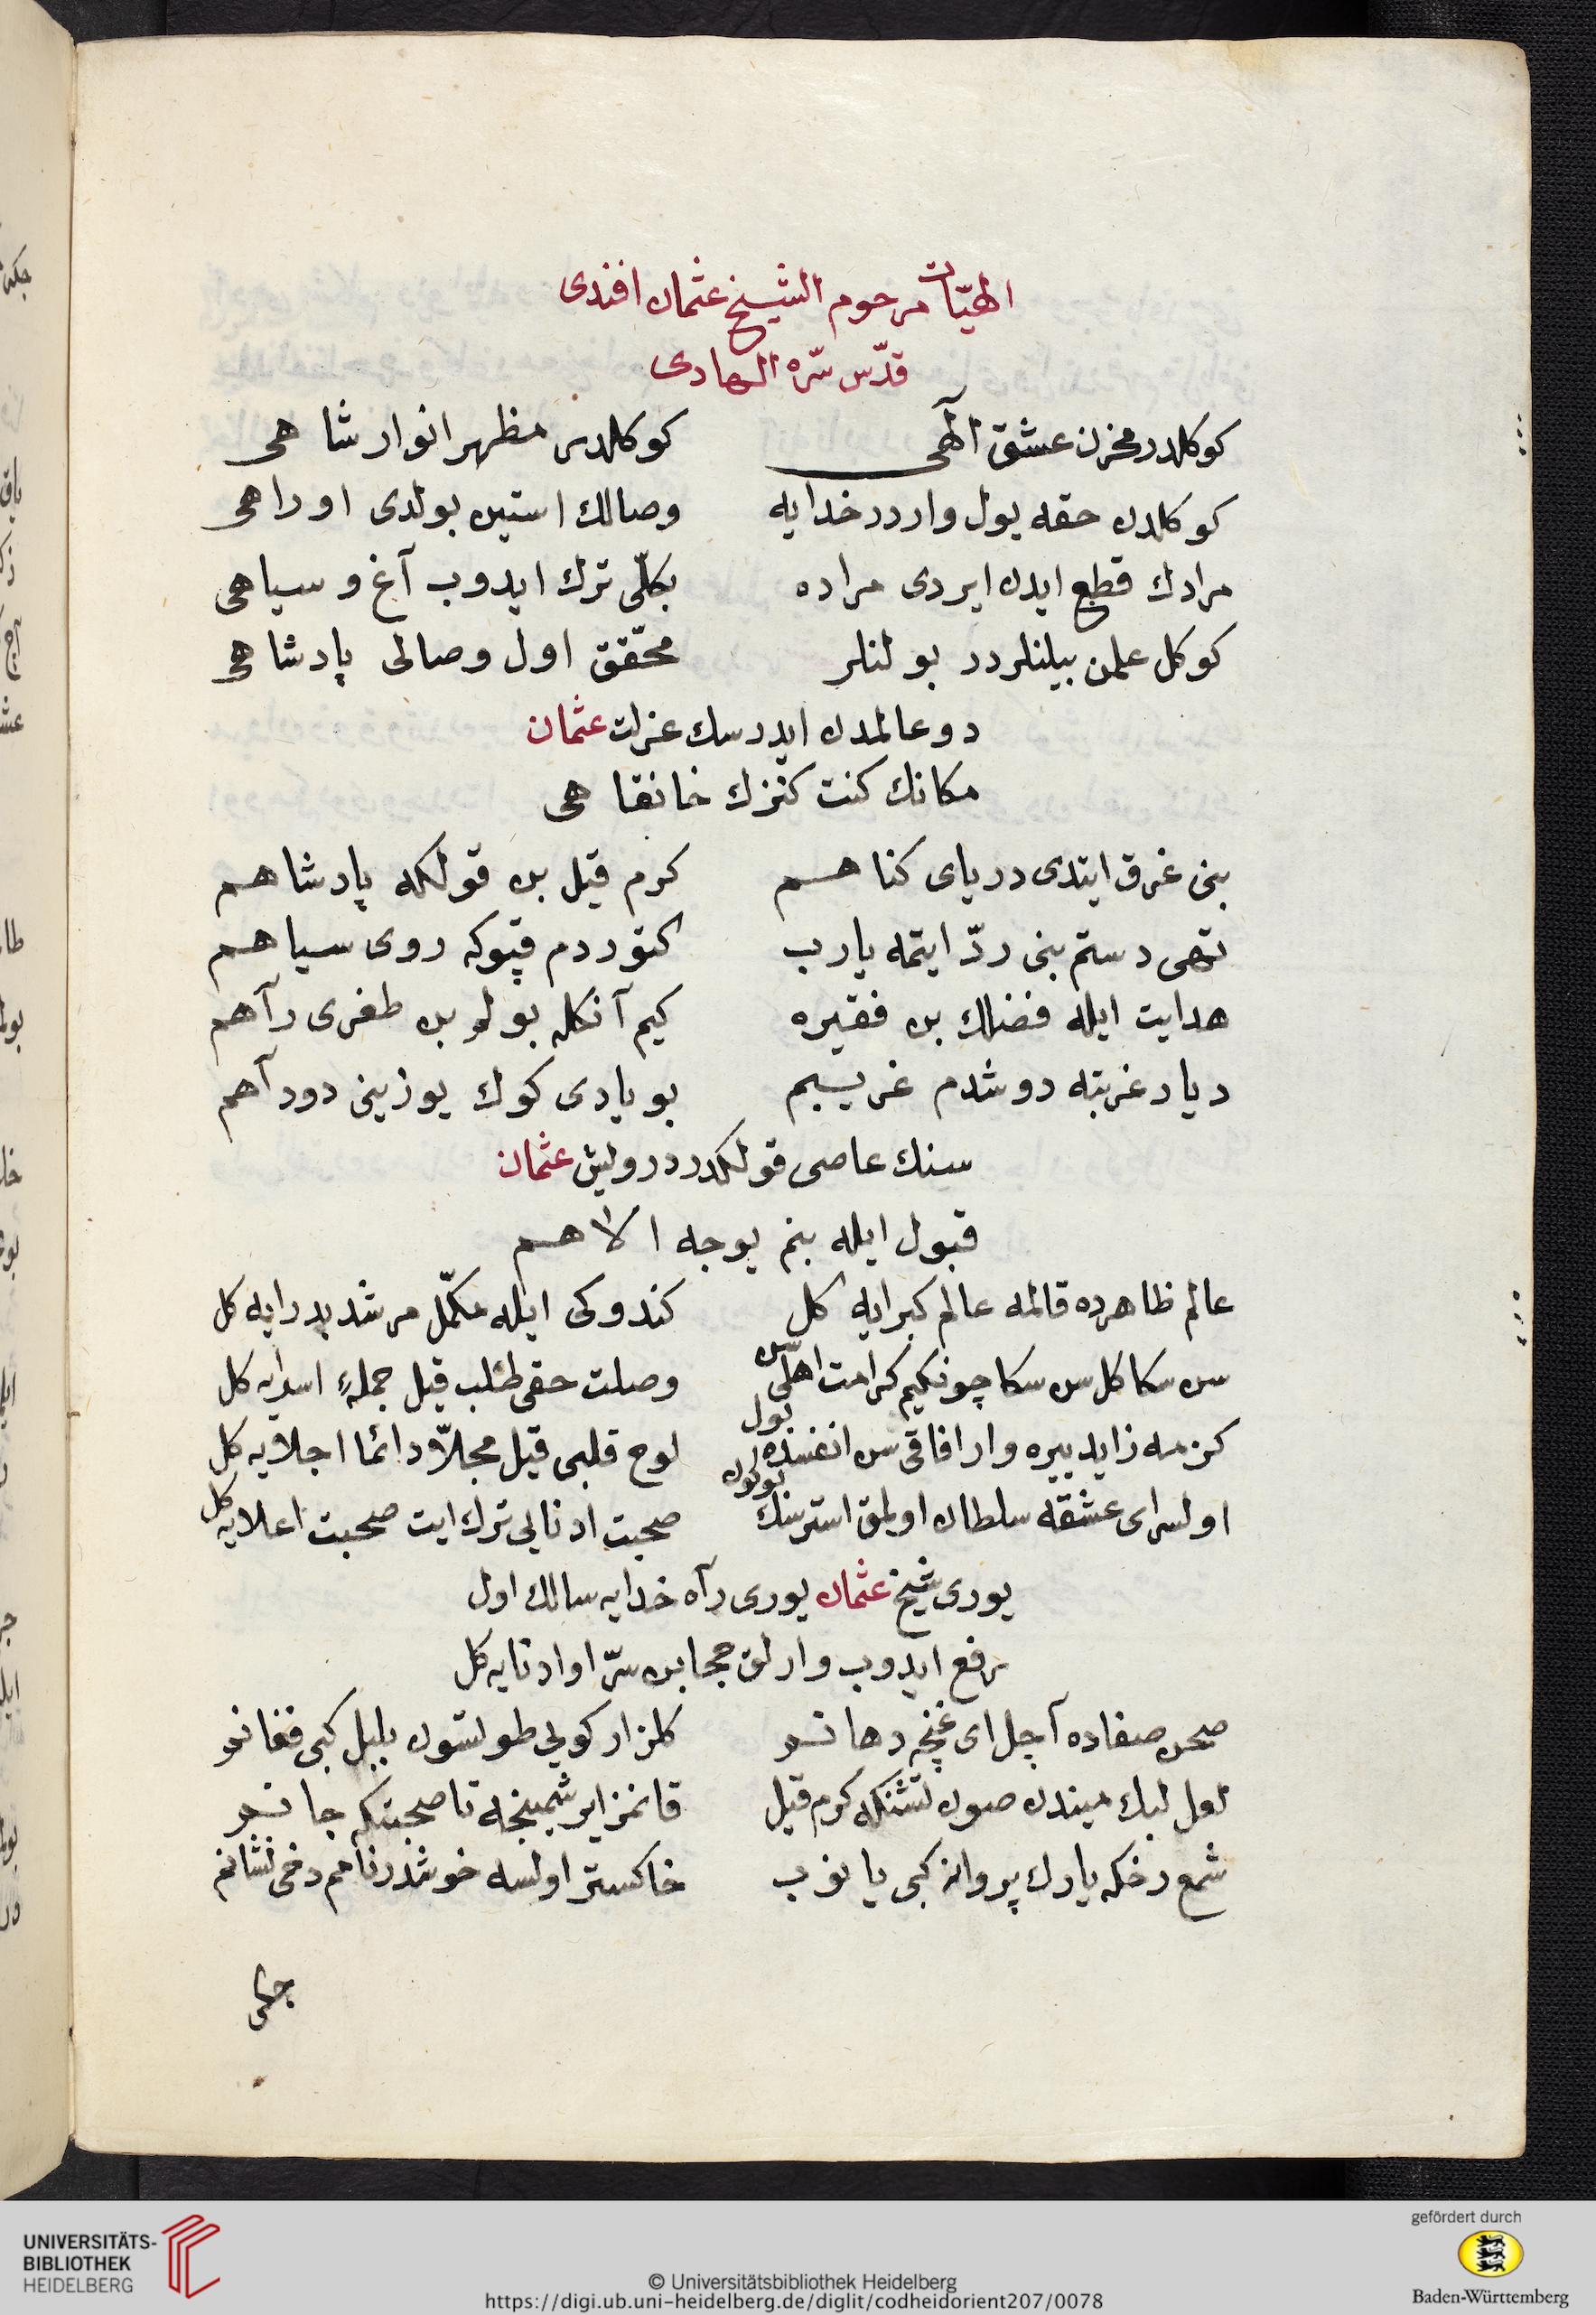 الهیّات مرحوم الشیخ عثمان افندی
قدّس سّره الهادی
کوکلدر مخزن عشق آلهی کوکلدر مظهر انوار شاهی
کوکلدن حقه یول واردر خدایه وصالك استین بولدی او راهی
مرادك قطع ایدن ایردی مراده بکلّی ترك ایدوب آغ و سیاهی
کوکل علمن بیلنلردر بولنلر محّقق اول وصالی پادشاهی
دو عالمدن ایدرسك عزلت عثمان
مکانك کنت کنزك خانقاهی
بنی غرق ایتدی دریای کناهم کرم قیل بن قولکه پادشاهم
تهی دستم بنی ردّ ایتمه یارب کتوردم قپوکه روی سیاهم
هدایت ایله فضلك بن فقیره کیم آنکله بولم بن طغری رآهم
دیار غربته دوشدم غریبم بویادی کوك یوزینی دود آهم
سنك عاصی قولکدر درویش عثمان
قبول ایله بنم یوجه الاهم
عالم ظاهرده قالمه عالم کبرایه کل کندوکی ایله مکمّل مرشد یدرایه کل
سن سکا کل سن سکا چونکیم کرامت اهلّیسن وصلت حقی طلب قیل جملهٔ اسرایه کل
کزمه زاید ییره وار افاقی سن انفسده بول لوح قلبی قیل مجلاّ و دائما اجلایه کل
اول سرای عشقه سلطان اولمق استرسنك بوکون صحبت ادنایی ترك ایت صحبت اعلایه کل
یوری شیخ عثمان یوری رآه خدایه سالك اول
رفع ایدوب وارلق حجابن سرّ او ادنایه کل
صحن صفاده آچل ای غنچه دهانم کلزار کویی طولتسون بلبل کبی فغانم
لعل لبك میندن صون تشنکه کرم قیل قانمز ایرشمینجه تا صحبتکه جانم
شمع رخکه یارك پروانه کبی یانوب خاکستر اولسه خوشدر نامم دخی نشانم